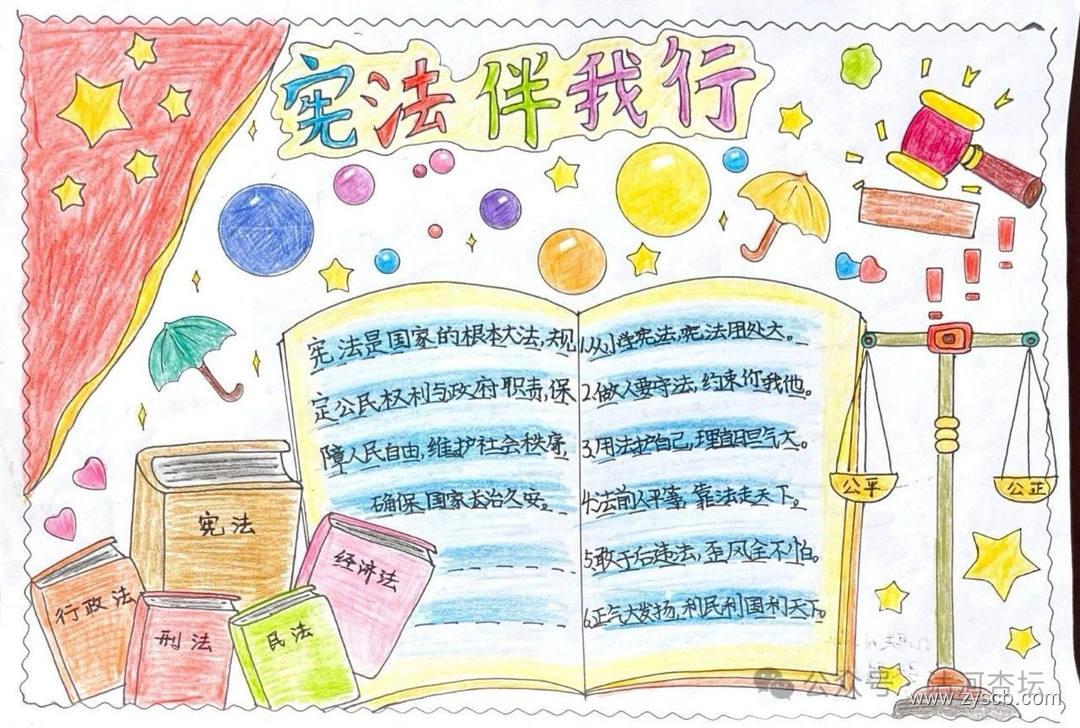 宪法伴我行
宪法是国家的根本大法,规
定公民权利与政府职责,保
障人民自由,维护社会秩序,
确保国家长治久安。
1.从小学宪法,宪法用处大。
2.做人要守法,约束你我他。
3.用法护自己,理直气大。
4.法前人平等,靠法走天下。
5.敢于右违法,歪风全不怕。
6.正气大发扬,利民利国利天下。
公平
公正
宪法
经济法
行政法
刑法
民法
公众号
www.zyscb.com